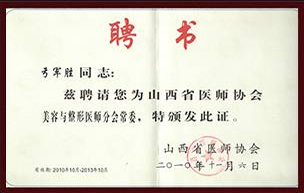 聘书
弓军胜同志：
兹聘请您为山西省医师协会
美容与整形医师分会常委，特颁发此证。
山西省医师协会
二〇一〇年十一月六日
有效期：2010年10月-2013年10月